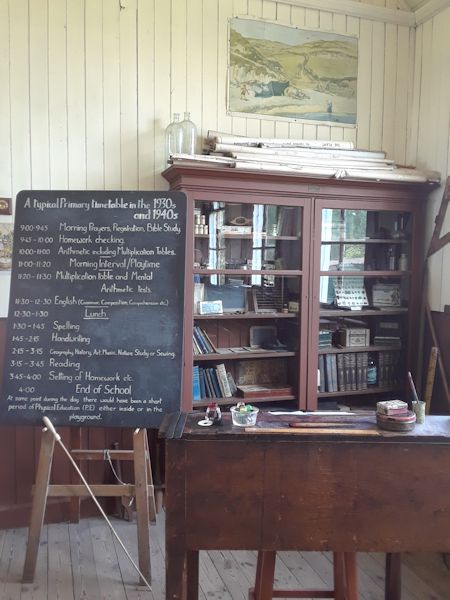 A typical Primary timetable in the 1930s
and 1940s
9·00-9·45 Morning Prayers, Registration, Bible Study
9·45-10·00 Homework checking
10·00-11·00 Arithmetic including Multiplication Tables.
11·00-11·20 Morning Interval/Playtime
11·20-11·30 Multiplication Table and Mental
Arithmetic Tests.
11·30-12·30 English (Grammar, Composition, Comprehension etc.)
12·30-1·30 Lunch
1·30-1·45 Spelling
1·45-2·15 Handwriting
2·15-3·15 Geography, History, Art, Music, Nature Study or Sewing.
3·15-3·45 Reading
3·45-4·00 Setting of Homework etc
4·00 End of School
At some point during the day there would have been a short
period of Physical Education (P.E) either inside or in the
playground.